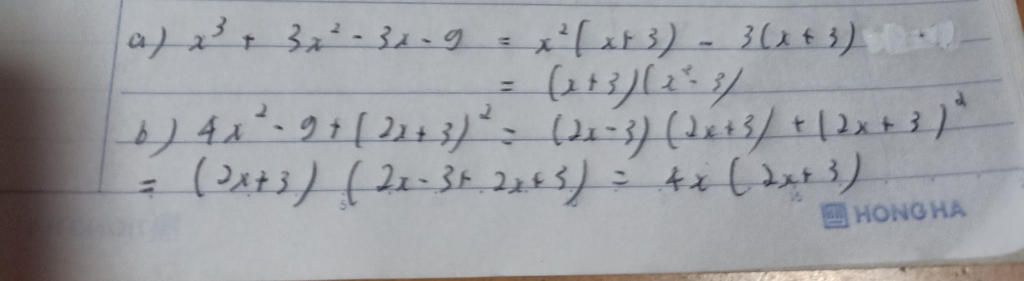 a) x³ + 3x² - 3x - 9 = x²(x+3) - 3(x+3)
= (x+3)(x²-3)
b) 4x² - 9 + (2x+3)² = (2x-3)(2x+3) + (2x+3)²
= (2x+3) (2x-3+2x+3) = 4x (2x+3)
HONG HA